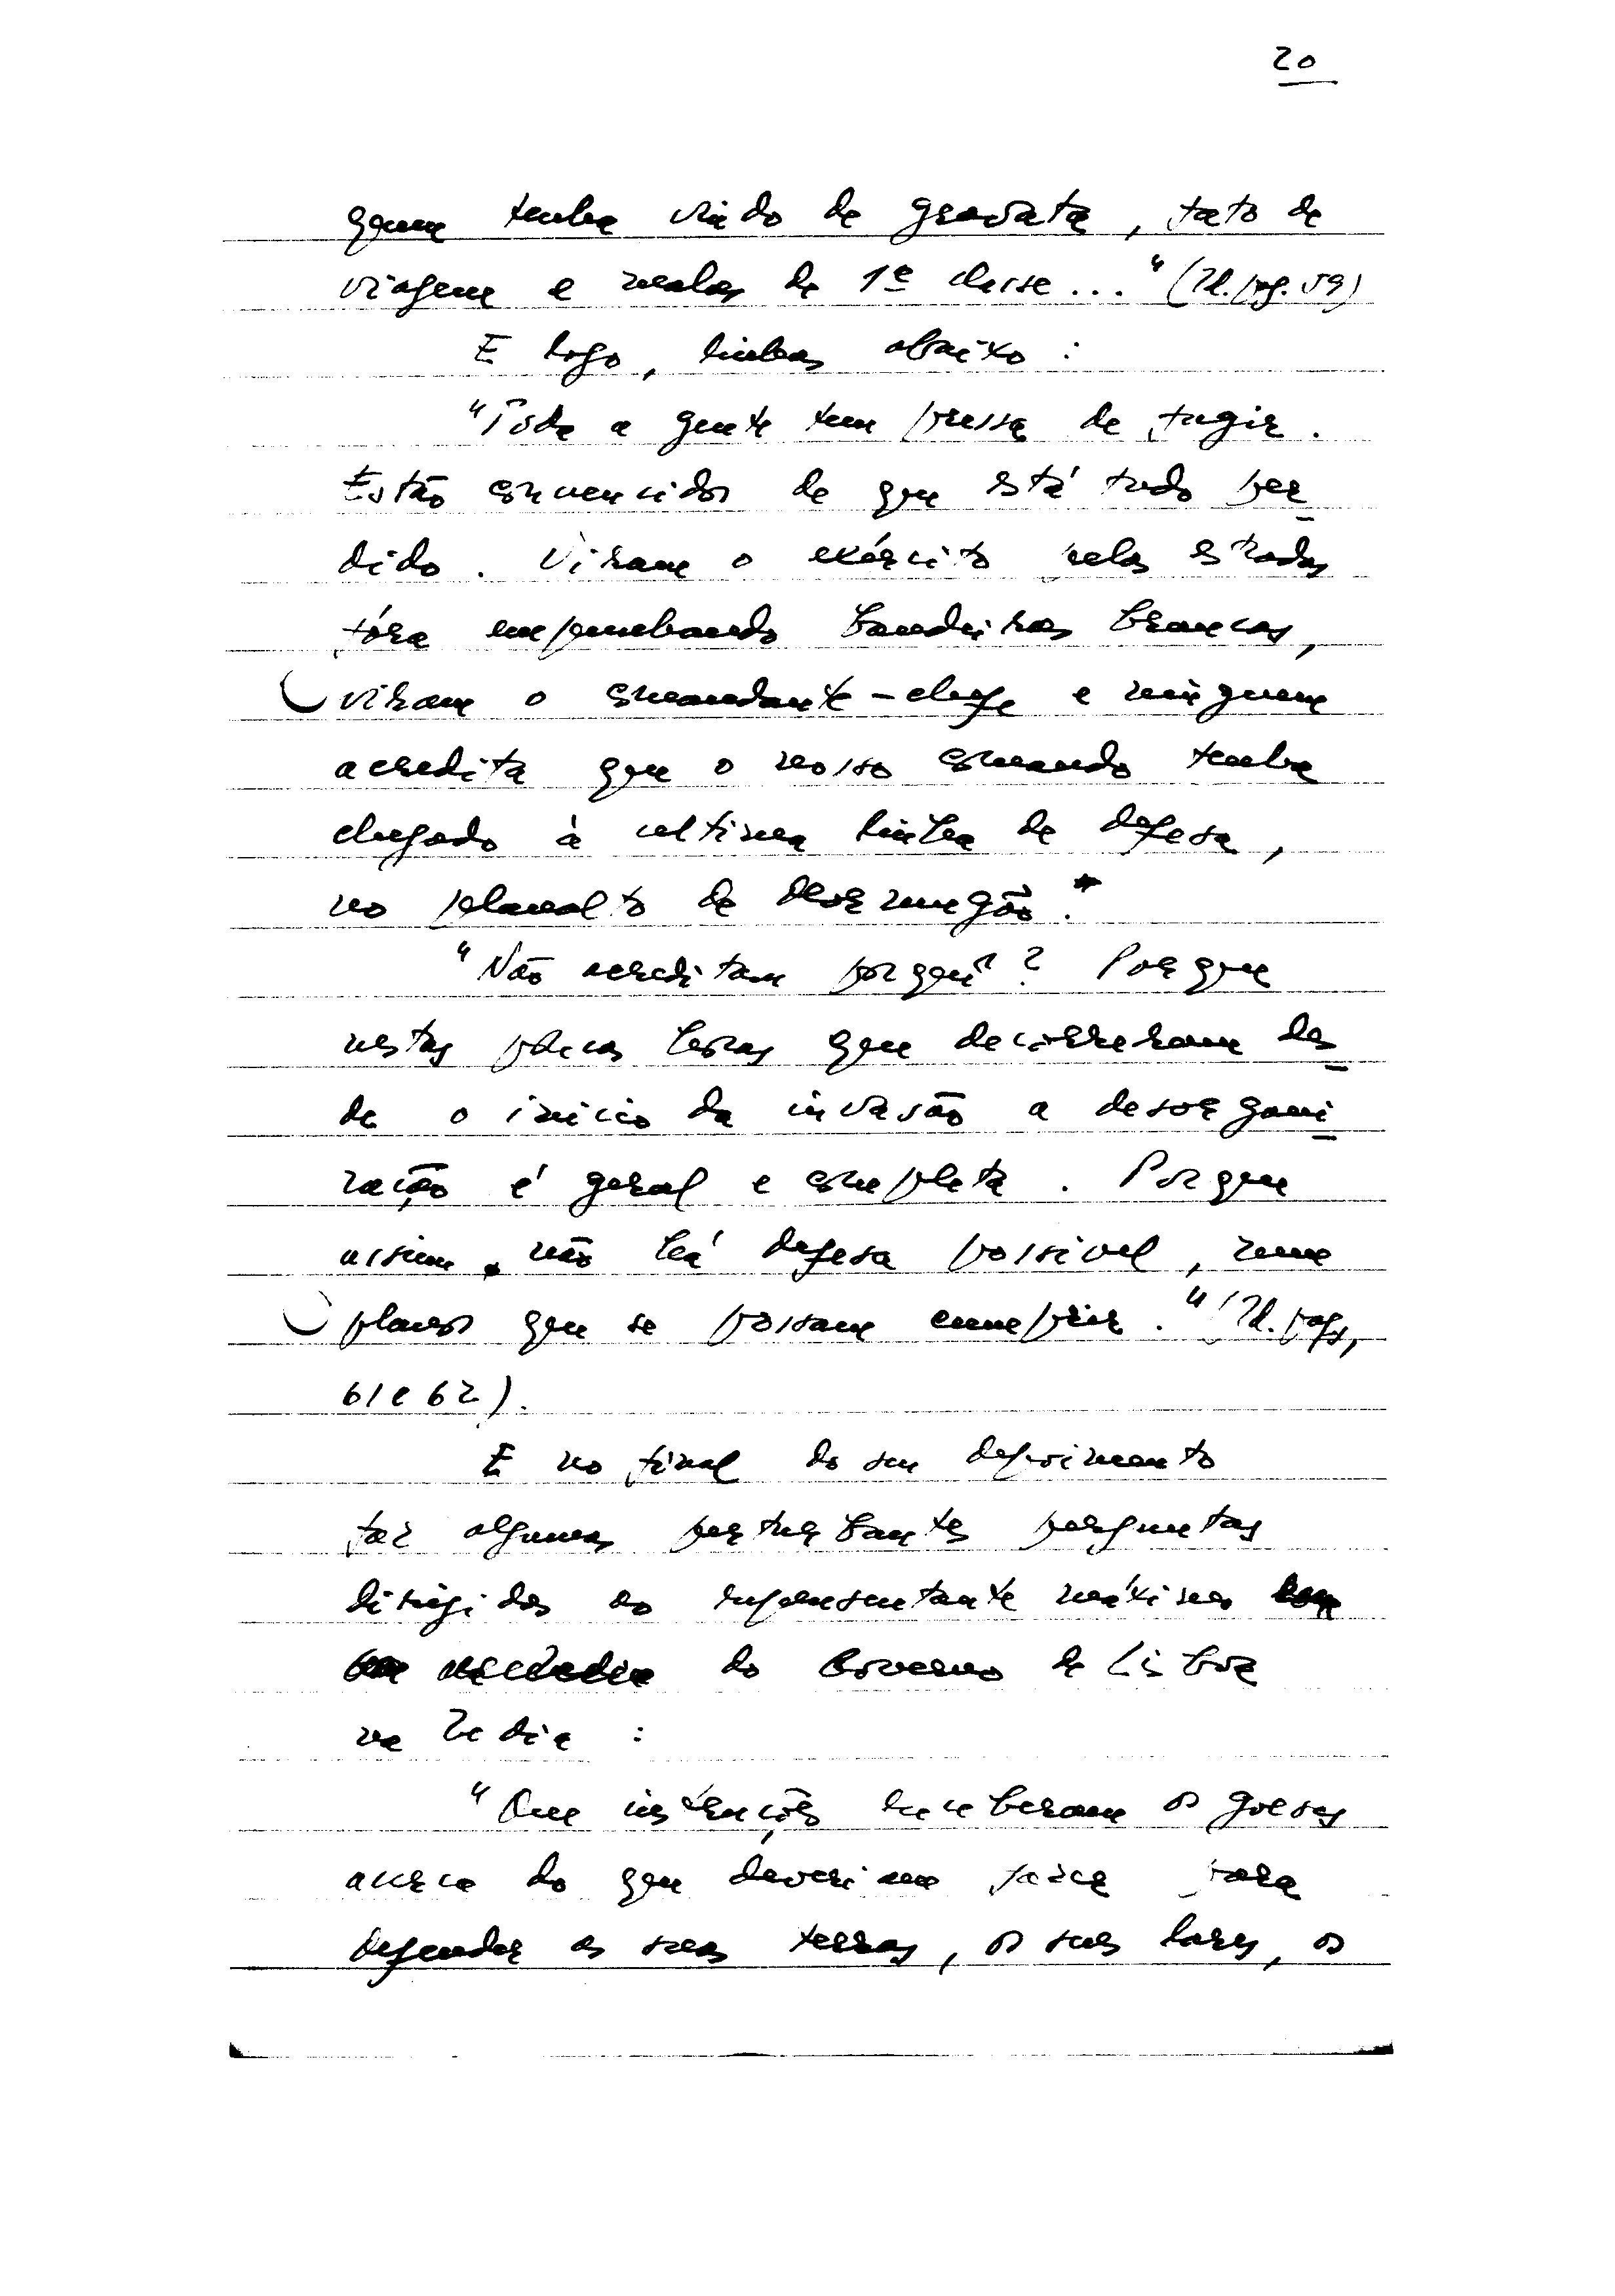 20
quem tenha vindo de gravata, fato de
viagem e malas de 1ª classe..." (Id. pág. 59)
E logo, linhas abaixo:
"Tôda a gente tem pressa de fugir.
Estão convencidos de que está tudo per
dido. Viram o exército pelas estradas
fóra empunhando bandeiras brancas,
viram o comandante-chefe e ninguem
acredita que o nosso comando tenha
chegado à ultima linha de defesa,
no planalto de Mormugão."
"Não acreditam porquê? Porque
nestas poucas horas que decorreram des
de o início da invasão a desorgani
zação é geral e completa. Porque
assim, não há defesa possivel, nem
planos que se possam cumprir." (Id. págs,
61 e 62).
E no final do seu depoimento
faz algumas perturbantes perguntas
dirigidas ao representante máximo
do Governo de Lisboa
na India:
"Que instruções receberam os goeses
acerca do que deveriam fazer para
defender as suas terras, os seus lares, os